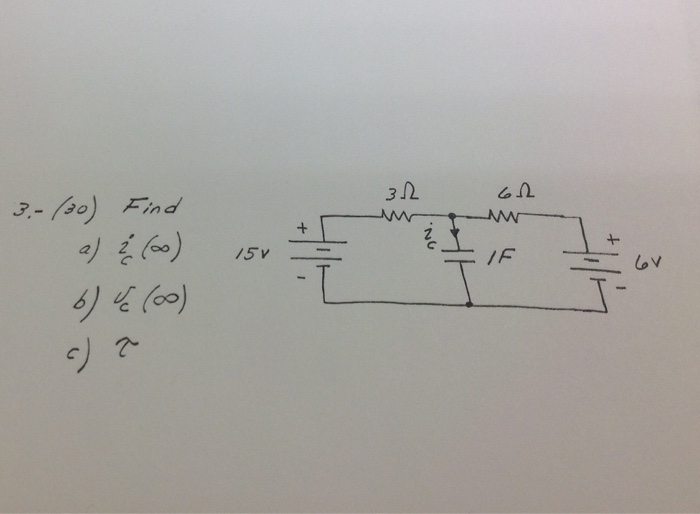 3.- (30) Find
a) i_c (∞)
b) v_c (∞)
c) τ
3Ω
6Ω
+
15V
-
i_c
1F
+
6V
-